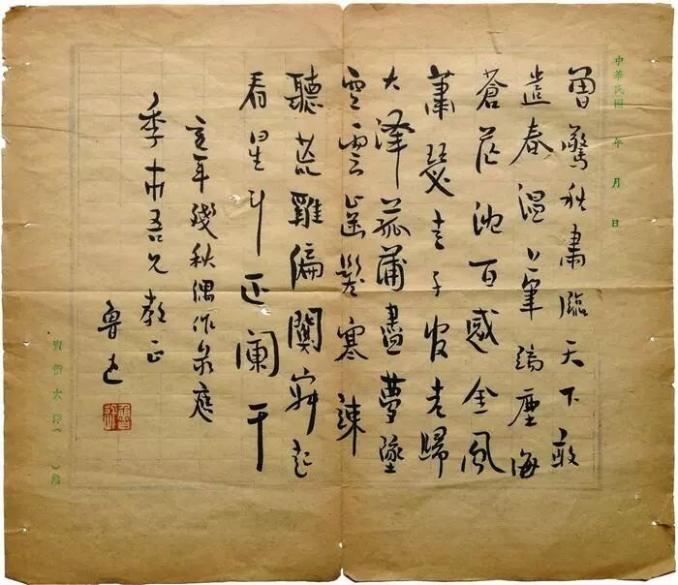 中華民國 年 月 日
曾驚秋肅臨天下敢
遣春溫上筆端塵海
蒼茫沈百感金風
蕭瑟走千官老歸
大澤菰蒲盡夢墜
空雲齒髮寒竦
聽荒雞偏闃寂起
看星斗正闌干
亥年殘秋偶作錄應
季市吾兄教正
魯迅